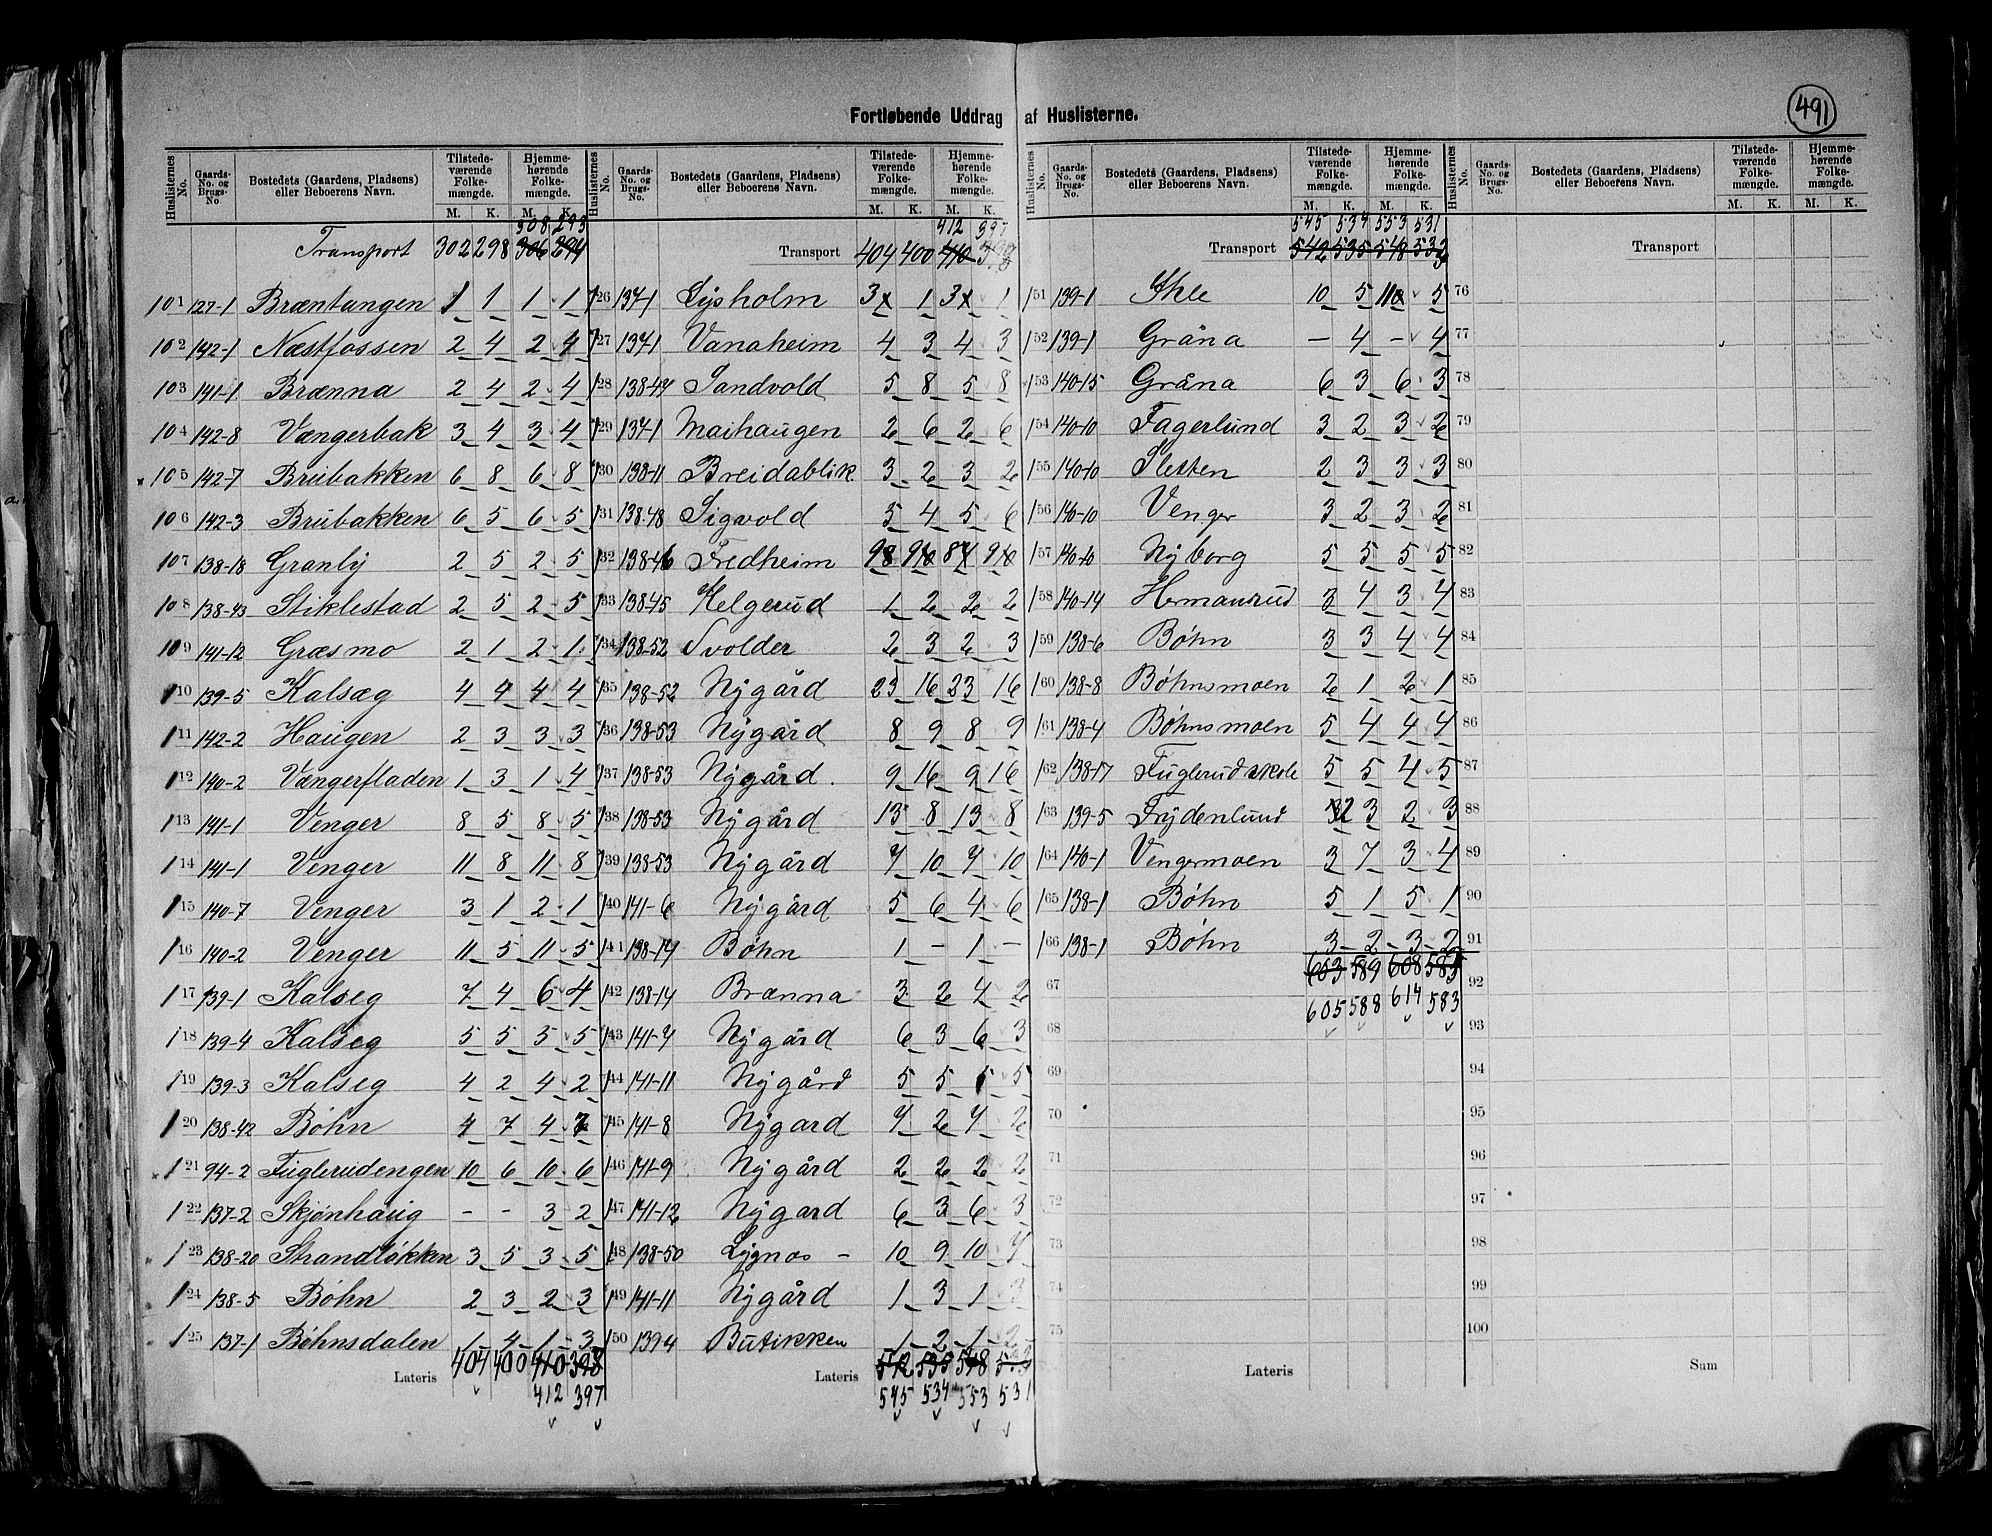 491
Fortløbende Uddrag af Huslisterne.
Huslisternes No. Gaards-No. og Brugs-No. Bostedets (Gaardens, Pladsens) eller Beboerens Navn. Tilstedeværende Folkemængde. M. K. Hjemmehørende Folkemængde. M. K.
308 293
Transport 302 298 306 294
101 127-1 Bræntangen 1 1 1 1
102 142-1 Næstfossen 2 4 2 4
103 141-1 Brænna 2 4 2 4
104 142-8 Vængerbak 3 4 3 4
105 142-7 Brubakken 6 8 6 8
106 142-3 Brubakken 6 5 6 5
107 138-18 Granby 2 5 2 5
108 138-43 Stiklestad 2 5 2 5
109 141-12 Græsmo 2 1 2 1
110 139-5 Kalsæg 4 4 4 4
111 142-2 Haugen 2 3 3 3
112 140-2 Vængerfladen 1 3 1 4
113 141-1 Venger 8 5 8 5
114 141-1 Venger 11 8 11 8
115 140-7 Venger 3 1 2 1
116 140-2 Venger 11 5 11 5
117 139-1 Kalseg 7 4 6 4
118 139-4 Kalseg 5 5 5 5
119 139-3 Kalseg 4 2 4 2
120 138-42 Bøhn 4 7 4 7
121 94-2 Fuglerudengen 10 6 10 6
122 137-2 Skjønhaug - - 3 2
123 138-20 Strandløkken 3 5 3 5
124 138-5 Bøhn 2 3 2 3
125 137-1 Bøhnsdalen 1 4 1 3
Lateris 404 400 410 398
412 397
Huslisternes No. Gaards-No. og Brugs-No. Bostedets (Gaardens, Pladsens) eller Beboerens Navn. Tilstedeværende Folkemængde. M. K. Hjemmehørende Folkemængde. M. K.
412 397
Transport 404 400 410 398
126 137-1 Lysholm 3 1 3 1
127 137-1 Vanaheim 4 3 4 3
128 138-44 Sandvold 5 8 5 8
129 137-1 Maihaugen 2 6 2 6
130 138-11 Breidablik 3 2 3 2
131 138-48 Sigvold 5 4 5 6
132 138-46 Fredheim 9 9 8 9
133 138-45 Helgerud 1 2 2 2
134 138-52 Svolder 2 3 2 3
135 138-52 Nygård 23 16 23 16
136 138-53 Nygård 8 9 8 9
137 138-53 Nygård. 9 16 9 16
138 138-53 Nygård 13 8 13 8
139 138-53 Nygård 7 10 7 10
140 141-6 Nygård 5 6 4 6
141 138-14 Bøhn 1 - 1 -
142 138-14 Brænna 3 2 4 2
143 141-4 Nygård 6 3 6 3
144 141-11 Nygård 5 5 5 5
145 141-8 Nygard 7 2 7 2
146 141-9 Nygård 2 2 2 2
147 141-12 Nygard 6 3 6 3
148 138-50 Lygnos - 10 9 10 7
149 141-11 Nygård 1 3 1 3
150 139-4 Butikken 1 2 1 2
Lateris 542 535 548 532
545 534 553 531
Huslisternes No. Gaards-No. og Brugs-No. Bostedets (Gaardens, Pladsens) eller Beboerens Navn. Tilstedeværende Folkemængde. M. K. Hjemmehørende Folkemængde. M. K.
545 534 553 531
Transport 542 535 548 532
151 139-1 Ihle 10 5 11 5
152 139-1 Gråna - 4 - 4
153 140-15 Gråna 6 3 6 3
154 140-10 Fagerlund 3 2 3 2
155 140-10 Sletten 2 3 3 3
156 140-10 Venger 3 2 3 2
157 140-10 Nyborg 5 5 5 5
158 140-14 Hermansrud 3 4 3 4
159 138-6 Bøhn 3 3 4 4
160 138-8 Bøhnsmoen 2 1 2 1
161 138-4 Bøhnsmoen 5 4 4 4
162 138-17 Fuglerudskole 5 5 4 5
163 139-5 Frydenlund 2 3 2 3
164 140-1 Vengermoen 3 7 3 4
165 138-1 Bøhn 5 1 5 1
166 138-1 Bøhn 3 2 3 2
67 603 589 608 583
605 588 614 583
68
69
70
71
72
73
74
75
Lateris
Huslisternes No. Gaards-No. og Brugs-No. Bostedets (Gaardens, Pladsens) eller Beboerens Navn. Tilstedeværende Folkemængde. M. K. Hjemmehørende Folkemængde. M. K.
Transport
76
77
78
79
80
81
82
83
84
85
86
87
88
89
90
91
92
93
94
95
96
97
98
99
100
Sum